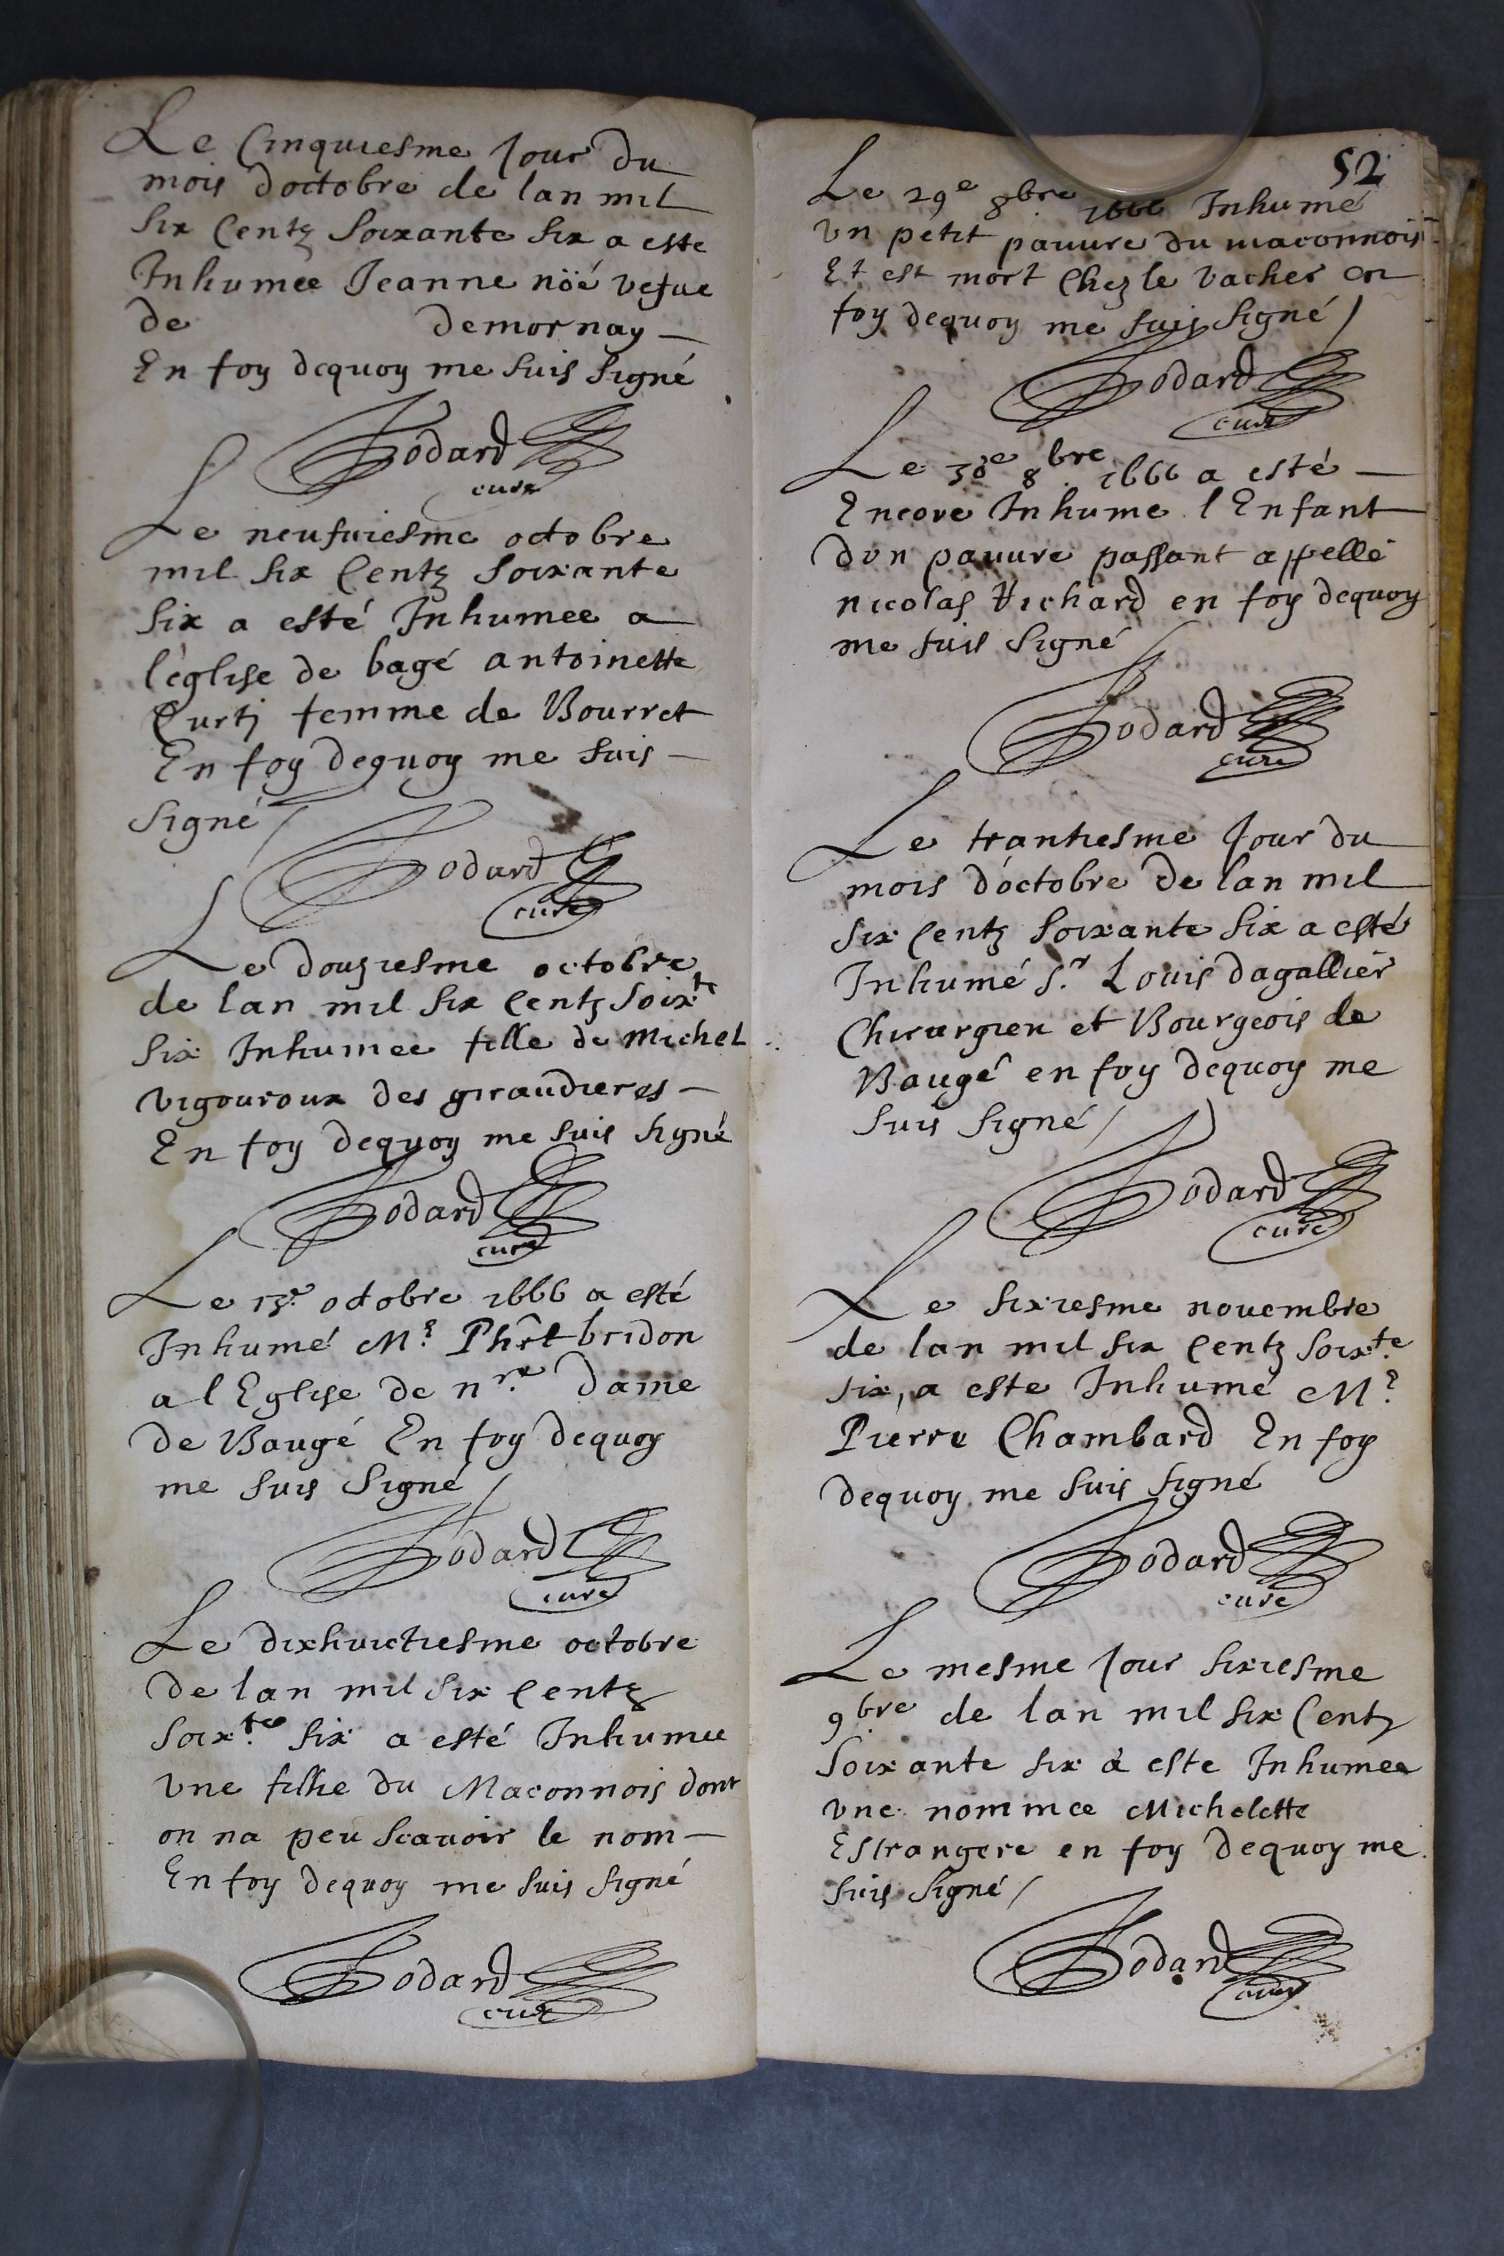 Le Cinquiesme Jour du
mois doctobre de lan mil
Six Centz Soixante Six a este
Inhumee Jeanne nöé vefue
de demornay —
En foy dequoy me suis signé
Godard
curé
Le neufuiesme octobre
mil six Centz Soixante
Six a esté Inhumee a
léglise de bagé antoinette
Curtj femme de Bourret
En foy dequoy me suis —
Signé /
Godard
curé
Le douziesme octobre
de lan mil six Centz Soixte
Six Inhumee fille de Michel
vigouroux des giraudieres —
En foy dequoy me suis signé
Godard
curé
Le 13e octobre 1666 a esté
Inhumé Mr Phrt bridon
a lEglise de nre dame
de Baugé En foy dequoy
me suis Signé /
Godard
curé
Le dixhuictiesme octobre
de lan mil six Centz
Soixte six a esté Inhumee
vne fille du Maconnois dont
on na peu scauoir le nom —
En foy dequoy me suis signé
Godard
curé
52
Le 29e 8bre 1666 Inhumé
vn petit pauure du maconnois
Et est mort Chez le vacher en
foy dequoy me suis signé /
Godard
curé
Le 30e 8bre 1666 a esté —
Encore Inhume lEnfant
dvn pauure passant appellé
nicolas Vichard en foy dequoy
me suis signé /
Godard
curé
Le trantiesme Jour du
mois doctobre de lan mil
six Centz soixante six a esté
Inhumé Sr Louis dagallier
Chirurgien et Bourgeois de
Baugé en foy dequoy me
suis signé /
Godard
curé
Le sixiesme nouembre
de lan mil six Centz soixte
six, a este Inhumé Mr
Pierre Chambard En foy
dequoy me suis signé
Godard
curé
Le mesme Jour sixiesme
9bre de lan mil six Centz
soixante six a este Inhumee
vne nommee Michelette
Estrangere en foy dequoy me
suis signé /
Godard
curé